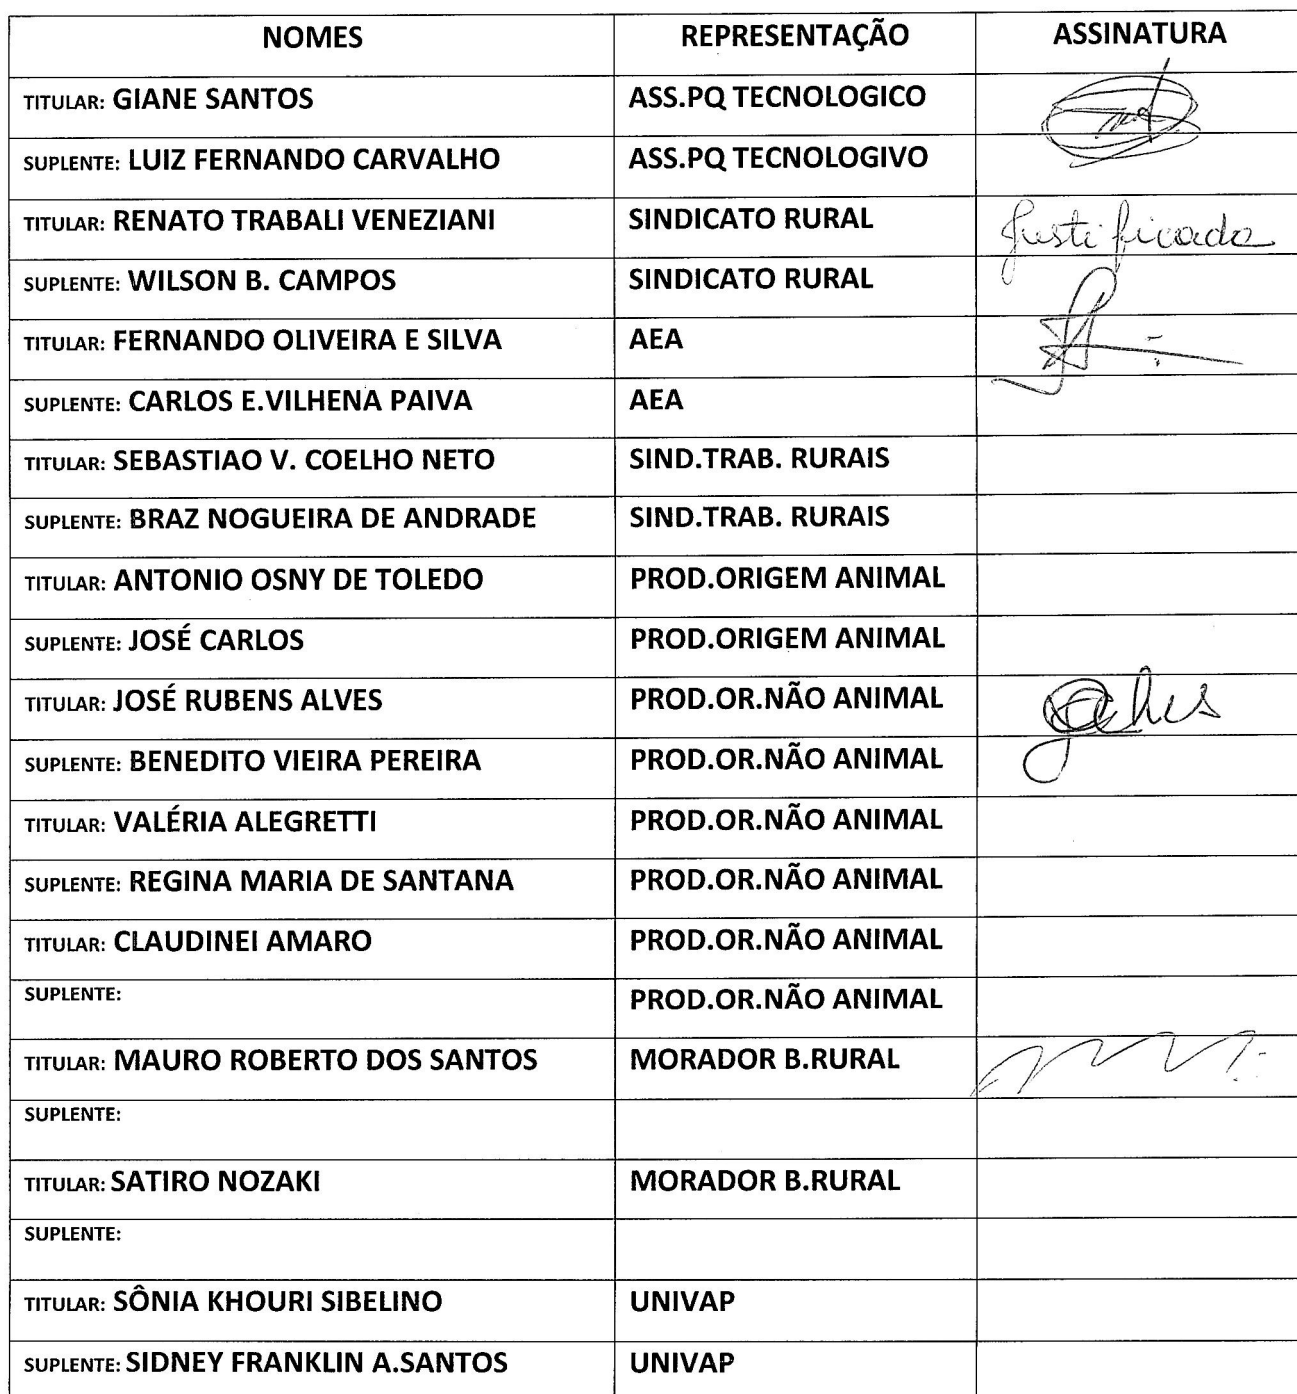 NOMES REPRESENTAÇÃO ASSINATURA
TITULAR: GIANE SANTOS ASS.PQ TECNOLOGICO
SUPLENTE: LUIZ FERNANDO CARVALHO ASS.PQ TECNOLOGIVO
TITULAR: RENATO TRABALI VENEZIANI SINDICATO RURAL Justificada
SUPLENTE: WILSON B. CAMPOS SINDICATO RURAL
TITULAR: FERNANDO OLIVEIRA E SILVA AEA
SUPLENTE: CARLOS E.VILHENA PAIVA AEA
TITULAR: SEBASTIAO V. COELHO NETO SIND.TRAB. RURAIS
SUPLENTE: BRAZ NOGUEIRA DE ANDRADE SIND.TRAB. RURAIS
TITULAR: ANTONIO OSNY DE TOLEDO PROD.ORIGEM ANIMAL
SUPLENTE: JOSÉ CARLOS PROD.ORIGEM ANIMAL
TITULAR: JOSÉ RUBENS ALVES PROD.OR.NÃO ANIMAL
SUPLENTE: BENEDITO VIEIRA PEREIRA PROD.OR.NÃO ANIMAL
TITULAR: VALÉRIA ALEGRETTI PROD.OR.NÃO ANIMAL
SUPLENTE: REGINA MARIA DE SANTANA PROD.OR.NÃO ANIMAL
TITULAR: CLAUDINEI AMARO PROD.OR.NÃO ANIMAL
SUPLENTE: PROD.OR.NÃO ANIMAL
TITULAR: MAURO ROBERTO DOS SANTOS MORADOR B.RURAL
SUPLENTE:
TITULAR: SATIRO NOZAKI MORADOR B.RURAL
SUPLENTE:
TITULAR: SÔNIA KHOURI SIBELINO UNIVAP
SUPLENTE: SIDNEY FRANKLIN A.SANTOS UNIVAP